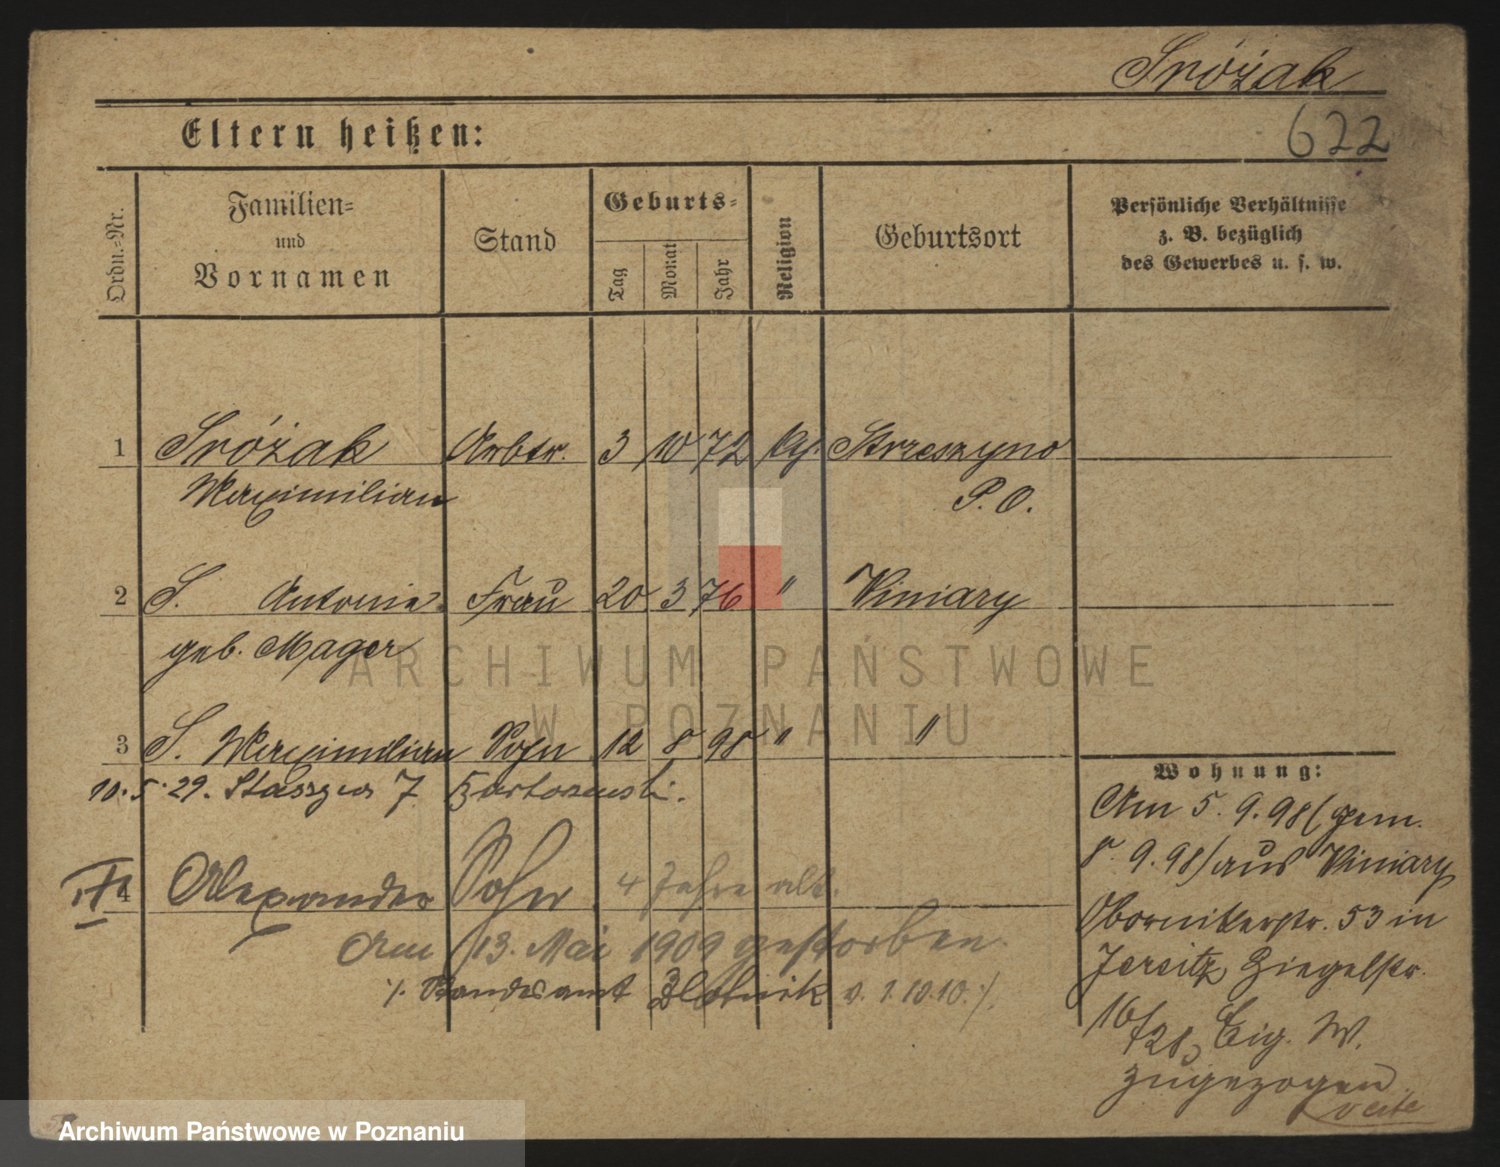 Sróżak
622
Eltern heißen:
Ordn.=Nr.
Familien=
und
Vornamen
Stand
Geburts=
Tag
Monat
Jahr
Religion
Geburtsort
Persönliche Verhältnisse
z. B. bezüglich
des Gewerbes u. s. w.
1 Sróżak Arbtr. 3 10 72 Strzeszyno
Maximilian P. O.
2 S. Antonie Frau 20 3 76 " Winiary
geb. Mager
3 S. Maximilian Sohn 12 8 98 " "
10. 5. 29. 7
4 Alexander Sohn 4 Jahre alt.
Am 13. Mai 1909 gestorben.
/. Standesamt v. 1.10.10. /.
Wohnung:
Am 5. 9. 98 (gem.
8. 9. 98) aus Winiary
Obornikerstr. 53 in
Jersitz Ziegelstr.
16/28, Eig. W.
zugezogen
ARCHIWUM PAŃSTWOWE
W POZNANIU
Archiwum Państwowe w Poznaniu